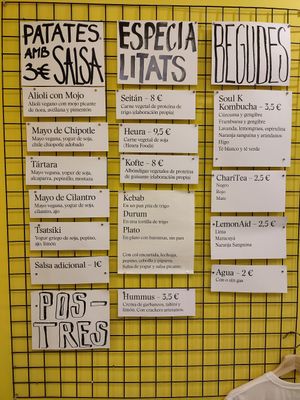 PATATES
AMB
3€ SALSA
Alioli con Mojo
Alioli vegano con mojo picante de
ñora, avellana y pimentón
Mayo de Chipotle
Mayo vegana, yogur de soja,
chile chipotle adobado
Tártara
Mayo vegana, yogur de soja,
alcaparra, pepinillo, mostaza
Mayo de Cilantro
Mayo vegana, yogur de soja,
cilantro, ajo
Tsatsiki
Yogur griego de soja, pepino,
ajo, limón
Salsa adicional – 1€
POS-
TRES
ESPECIA
LITATS
Seitán – 8 €
Carne vegetal de proteína de
trigo (elaboración propia)
Heura – 9,5 €
Carne vegetal de soja
(Heura Foods)
Kofte – 8 €
Albóndigas vegetales de proteína
de guisante (elaboración propia)
Kebab
En un pan pita de trigo
Durum
En una tortilla de trigo
Plato
En plato con hummus, sin pan
Con col encurtida, lechuga,
pepino, cebolla y paprika.
Salsa de yogur y salsa picante.
Hummus – 3,5 €
Crema de garbanzos, tahini y
limón. Con crackers artesanos.
BEGUDES
Soul K
Kombucha – 3,5 €
Cúrcuma y jengibre
Frambuesa y jengibre
Lavanda, lemongrass, espirulina
Naranja sanguina y arándanos
Higo
Té blanco y té verde
ChariTea – 2,5 €
Negro
Rojo
Mate
LemonAid – 2,5 €
Lima
Maracuyá
Naranja Sanguina
Agua – 2 €
Con o sin gas